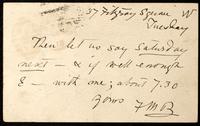 37 Fitzroy Square W
Tuesday
Then let us say Saturday
next – & if well enough
E – with me; about 7.30
Yours FMB